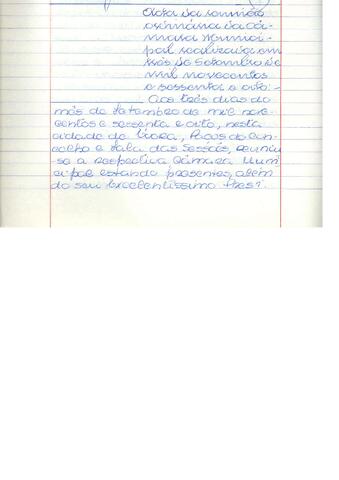 Acta da reunião
ordinária da Câ-
mara Munici-
pal realizada em
três de Setembro de
mil novecentos
e sessenta e oito: -
Aos três dias do
mês de Setembro de mil nove-
centos e sessenta e oito, nesta
cidade de Évora, Paços do Con-
celho e Sala das Sessões, reuniu-
se a respectiva Câmara Muni-
cipal estando presentes, além
do seu Excelentíssimo Presi-